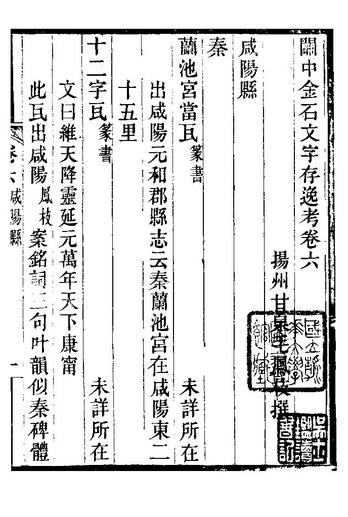 關中金石文字存逸考卷六
揚州甘泉毛鳳枝撰
咸陽縣
秦
蘭池宮當瓦篆書 未詳所在
出咸陽元和郡縣志云秦蘭池宮在咸陽東二
十五里
十二字瓦篆書 未詳所在
文曰維天降靈延元萬年天下康甯
此瓦出咸陽鳳枝案銘詞三句叶韻似秦碑體
卷六咸陽縣 一